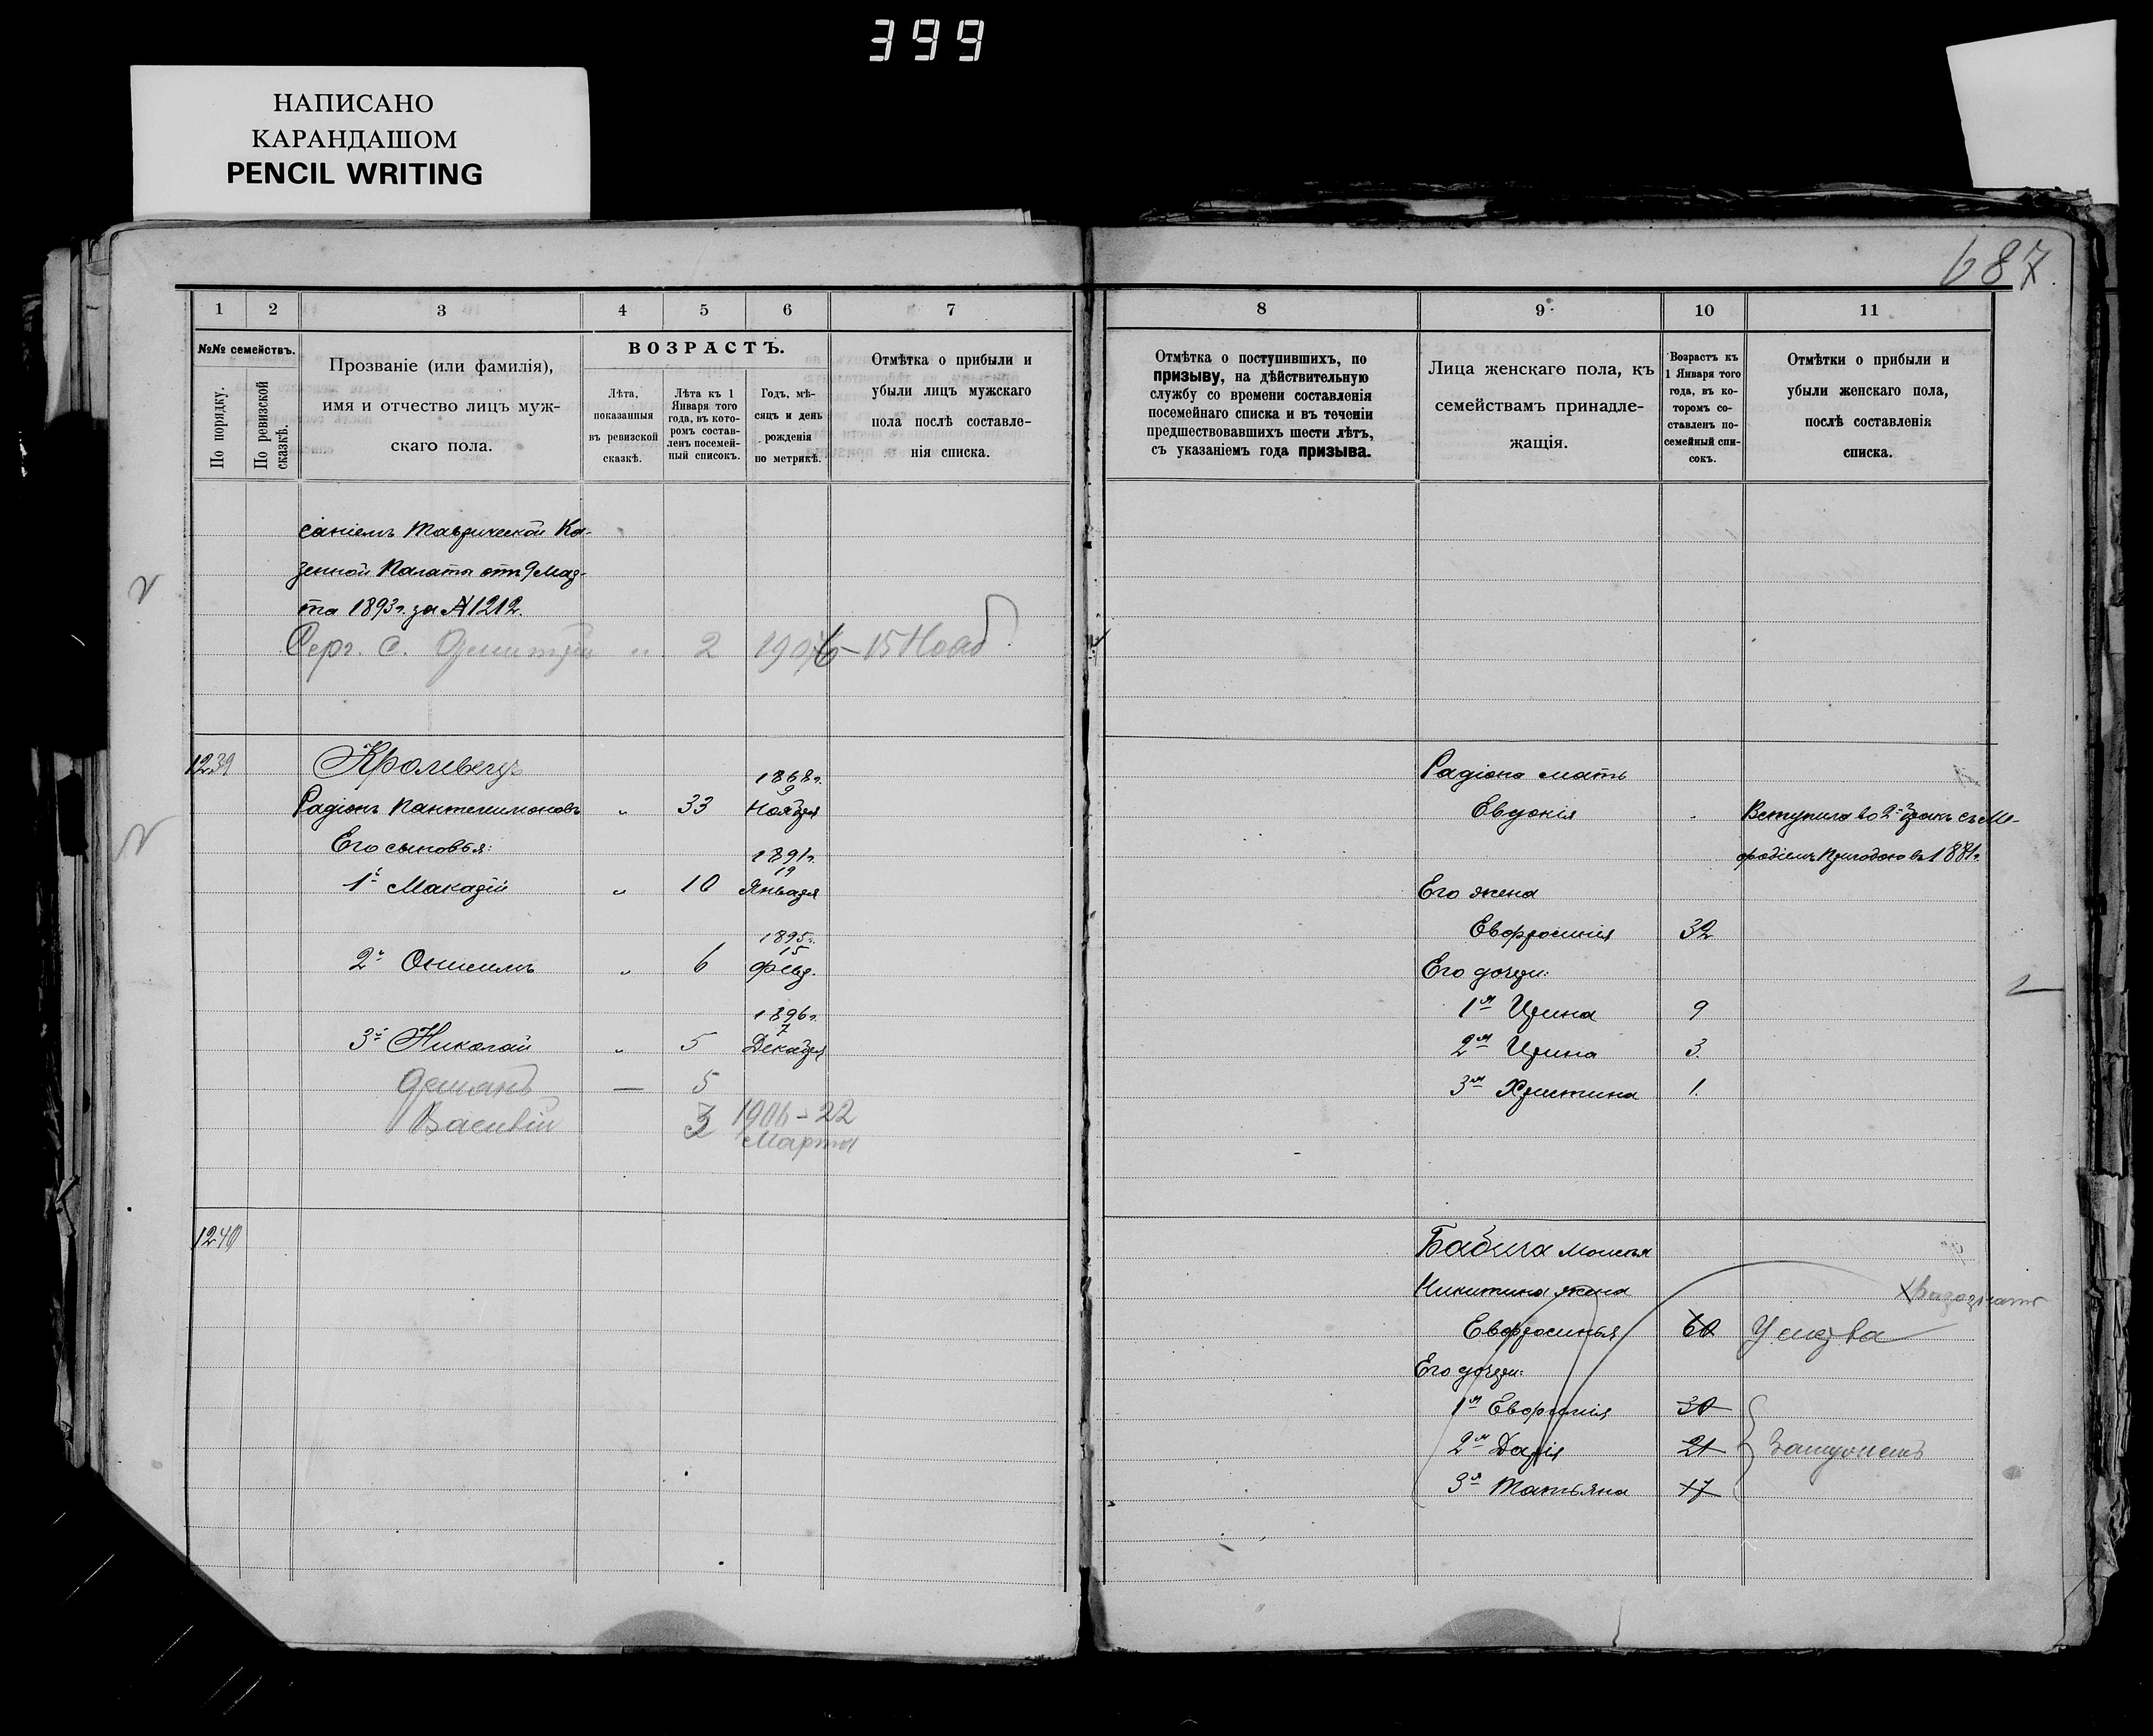 399
НАПИСАНО
КАРАНДАШОМ
PENCIL WRITING
687
1 2 3 4 5 6 7
№№ семействъ.
По порядку.
По ревизской сказкѣ.
Прозваніе (или фамилія),
имя и отчество лицъ муж-
скаго пола.
ВОЗРАСТЪ.
Лѣта,
показанныя
въ ревизской
сказкѣ.
Лѣта къ 1
Января того
года, въ кото-
ромъ состав-
ленъ посемей-
ный списокъ.
Годъ, мѣ-
сяцъ и день
рожденія
по метрикѣ.
Отмѣтка о прибыли и
убыли лицъ мужскаго
пола послѣ составле-
нія списка.
саніемъ Таврической Ка-
зенной Палаты отъ 9 Мар-
та 1893г. за № 1212.
Серг. с. Дмитрій " 2 1906 - 15 Нояб
1239 Кролевецъ
1868г.
9
Радіонъ Пантелимоновъ " 33 Ноября
Его сыновья:
1891г.
19
1й Макарій " 10 Января
1895г.
15
2й Онисимъ " 6 Февр.
1896г.
7
3й Николай " 5 Декабря
— 5
Василій 3 1906 - 22
Марта
1240
8 9 10 11
Отмѣтка о поступившихъ, по
призыву, на дѣйствительную
службу со времени составленія
посемейнаго списка и въ теченіи
предшествовавшихъ шести лѣтъ,
съ указаніемъ года призыва.
Лица женскаго пола, къ
семействамъ принадле-
жащія.
Возрастъ къ
1 Января того
года, въ ко-
торомъ со-
ставленъ по-
семейный спи-
сокъ.
Отмѣтки о прибыли и
убыли женскаго пола,
послѣ составленія
списка.
Радіона мать
Евдокія Вступила во 2й бракъ съ Ме-
фодіемъ въ 1881г.
Его жена
Евфросинія 32
Его дочери:
1я Ирина 9
2я Ирина 3.
3я Христина 1.
Бабича Моисея
Никитина жена
Евфросинья 60 Умерла
Его дочери:
1я Евфимія 30
2я Дарія 21 Замужемъ
3я Татьяна 17